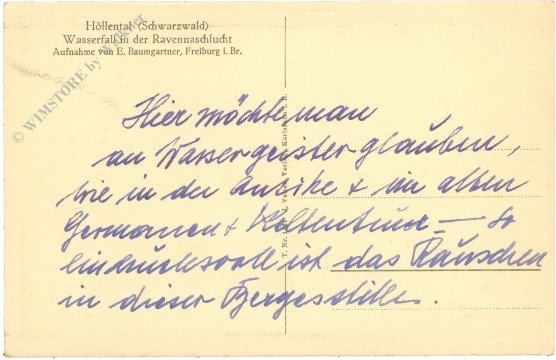 Höllental (Schwarzwald)
Wasserfall in der Ravennaschlucht
Aufnahme von E. Baumgartner, Freiburg i. Br.
© WIMSTORE by Wimmer
Hier möchte man
an Wassergeister glauben,
wie in der Antike + im alten
Germanen + Keltentum — so
eindrucksvoll ist das Rauschen
in dieser Bergesstille.